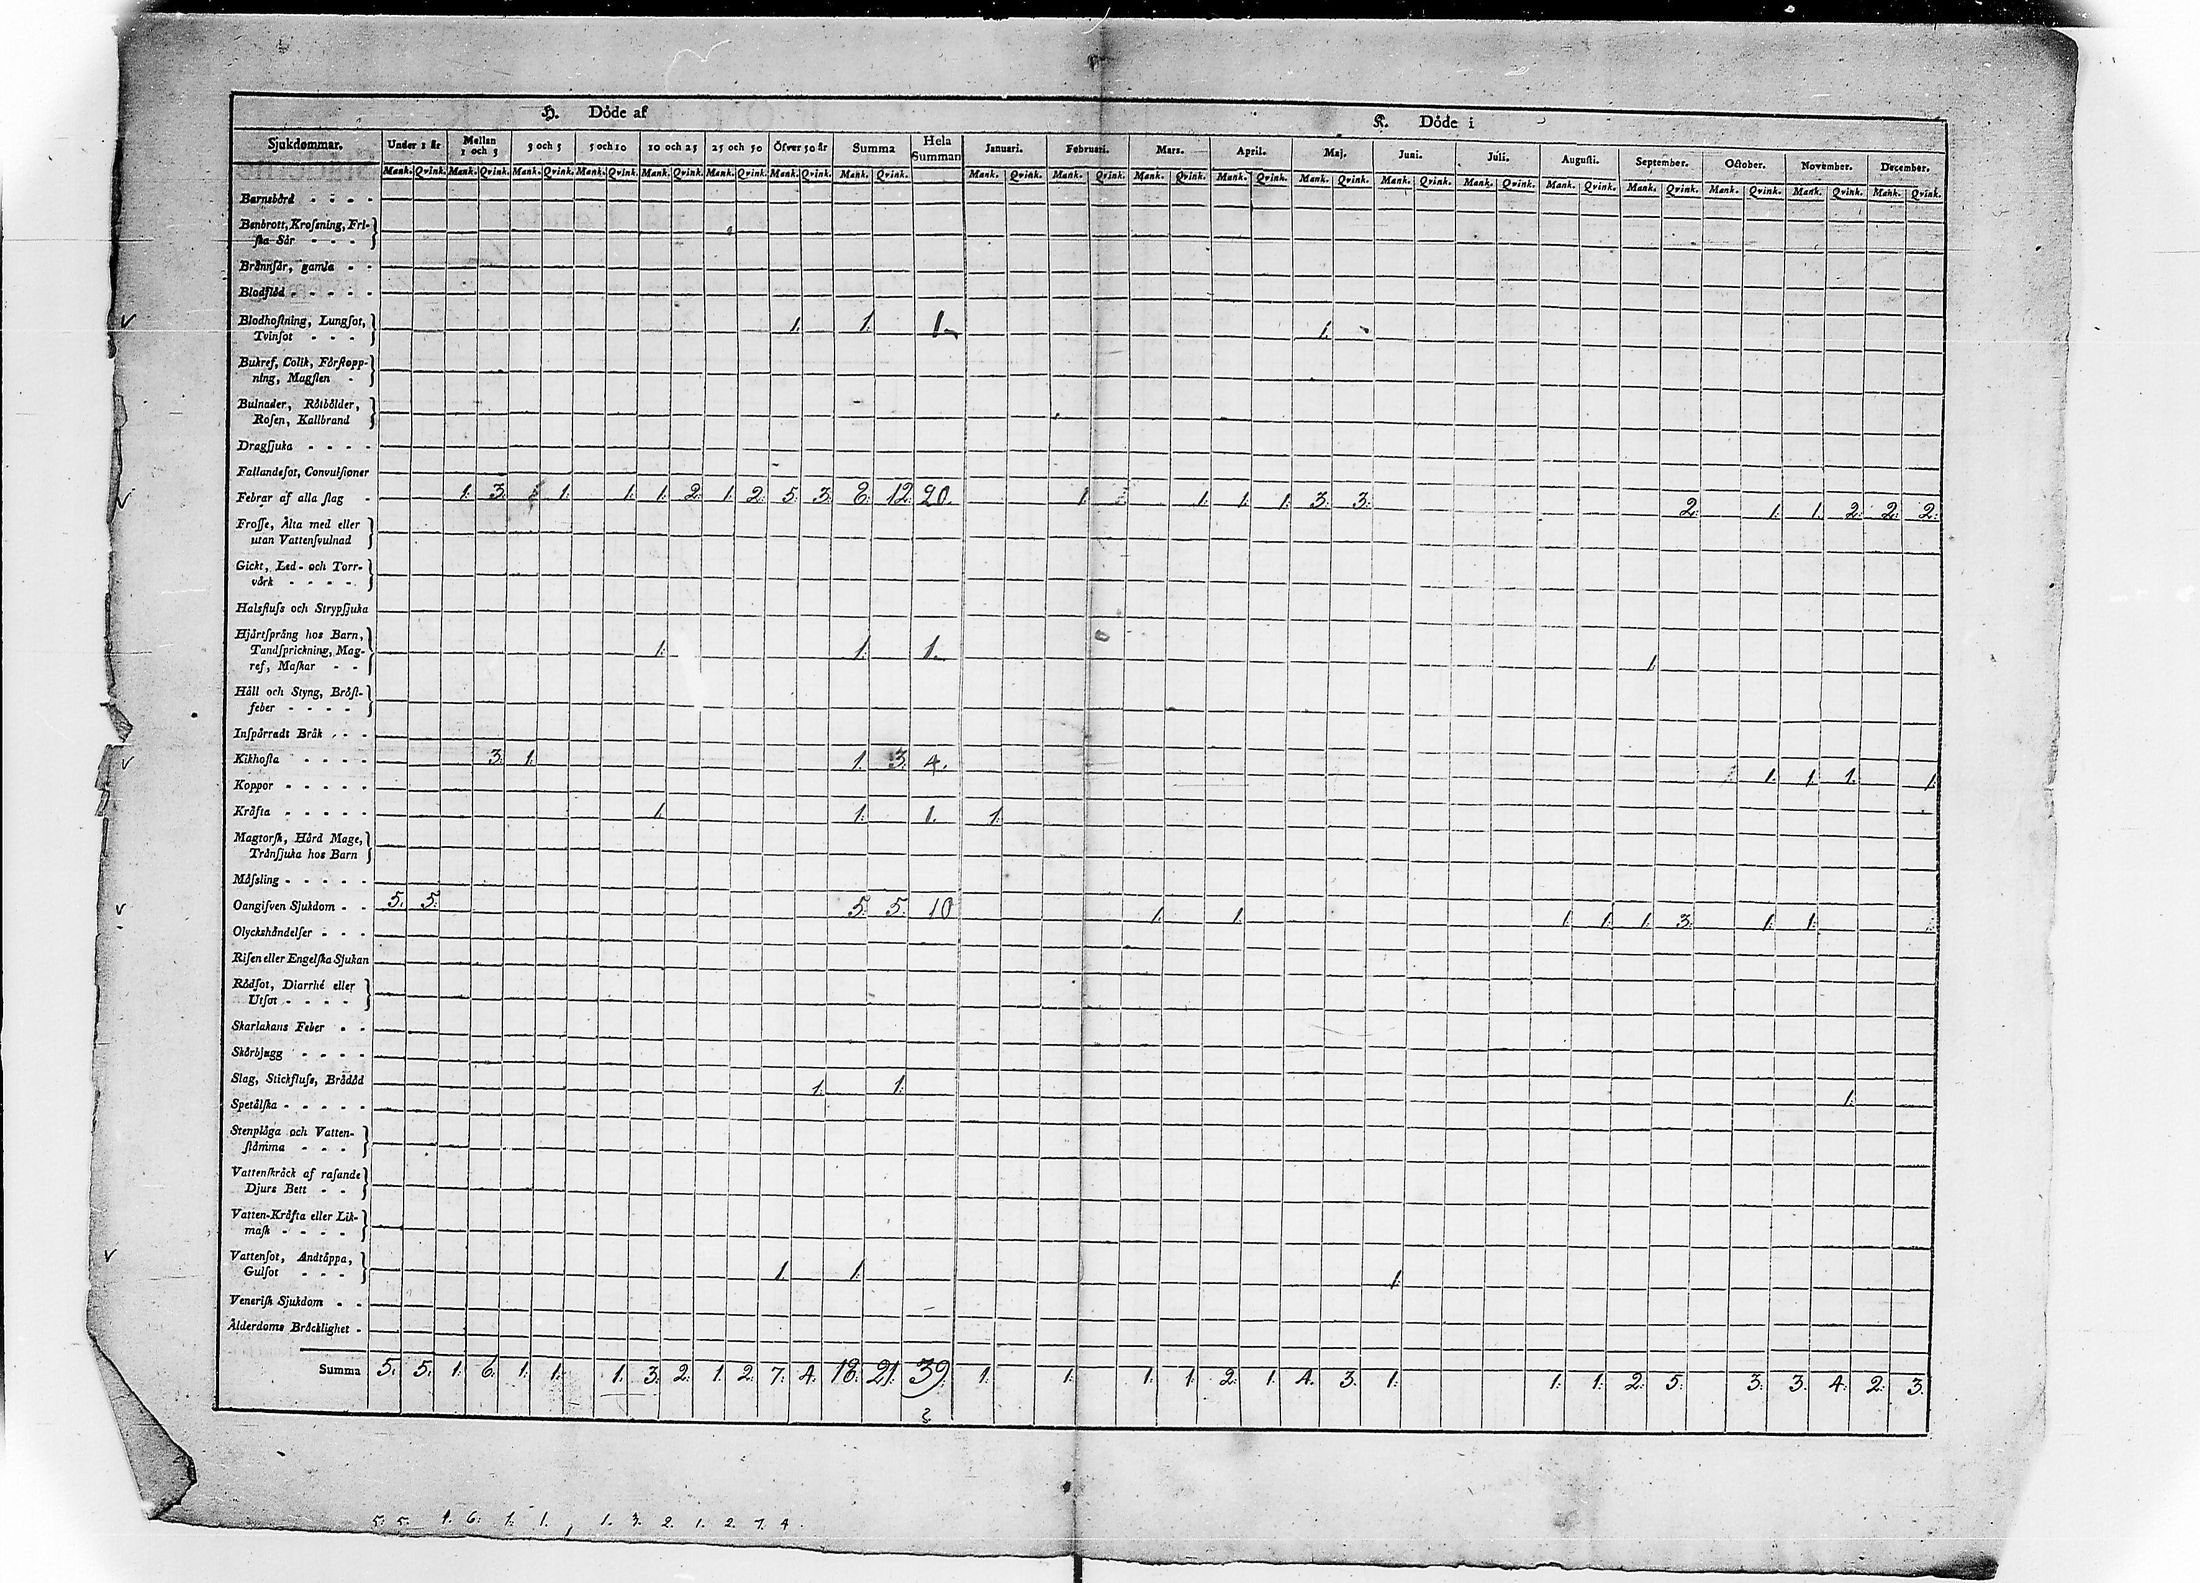 H. Döde af K. Döde i
Sjukdommar. Under 1 år Mellan 1 och 3 3 och 5 5 och 10 10 och 25 25 och 50 Öfver 50 år Summa Hela Summan Januari. Februari. Mars. April. Maj. Juni. Juli. Augusti. September. October. November. December.
Mank. Qvink. Mank. Qvink. Mank. Qvink. Mank. Qvink. Mank. Qvink. Mank. Qvink. Mank. Qvink. Mank. Qvink. Mank. Qvink. Mank. Qvink. Mank. Qvink. Mank. Qvink. Mank. Qvink. Mank. Qvink. Mank. Qvink. Mank. Qvink. Mank. Qvink. Mank. Qvink. Mank. Qvink. Mank. Qvink.
Barnsbörd - - - -
Benbrott, Krossning, Fri-
ska Sår - - -
Brännsår, gamla - -
Blodflöd - - - - -
Blodhostning, Lungsot,
Tvinsot - - - 1. 1. 1. 1.
Bukref, Colik, Förstopp-
ning, Magsten -
Bulnader, Rötbölder,
Rosen, Kallbrand
Dragsjuka - - - -
Fallandesot, Convulsioner
Febrar af alla slag - 1. 3. 1. 1. 1. 2. 1. 2. 5. 3. 8. 12. 20. 1. 1. 1. 1. 3. 3. 2. 1. 1. 2. 2. 2.
Frosse, Älta med eller
utan Vattensvulnad
Gickt, Led- och Torr-
värk - - - -
Halsfluss och Strypsjuka
Hjärtsprång hos Barn,
Tandsprickning, Mag-
ref, Maskar - - 1. 1. 1. 1.
Håll och Styng, Bröst-
feber - - - -
Inspärradt Bråk - - -
Kikhosta - - - - 3. 1. 1. 3. 4. 1. 1. 1. 1.
Koppor - - - - -
Kräfta - - - - - 1. 1. 1. 1.
Magtorsk, Hård Mage,
Tränsjuka hos Barn
Mässling - - - - -
Oangifven Sjukdom - - 5. 5. 5. 5. 10 1. 1. 1. 1. 1. 3. 1. 1.
Olyckshändelser - - -
Risen eller Engelska Sjukan
Rödsot, Diarrhé eller
Utsot - - - -
Skarlakans Feber - -
Skörbjugg - - - -
Slag, Stickfluss, Brådöd 1. 1. 1.
Spetälska - - - - -
Stenplåga och Vatten-
stämma - - -
Vattenskräck af rasande
Djurs Bett - -
Vatten-Kräfta eller Lik-
mask - - - -
Vattensot, Andtäppa,
Gulsot - - - 1. 1. 1.
Venerisk Sjukdom - -
Ålderdoms Bräcklighet -
Summa 5. 5. 1. 6. 1. 1. 1. 3. 2. 1. 2. 7. 4. 18. 21. 39. 1. 1. 1. 1. 2. 1. 4. 3. 1. 1. 1. 2. 5. 3. 3. 4. 2. 3.
5. 5. 1. 6. 1. 1. , 1. 3. 2. 1. 2. 7. 4.